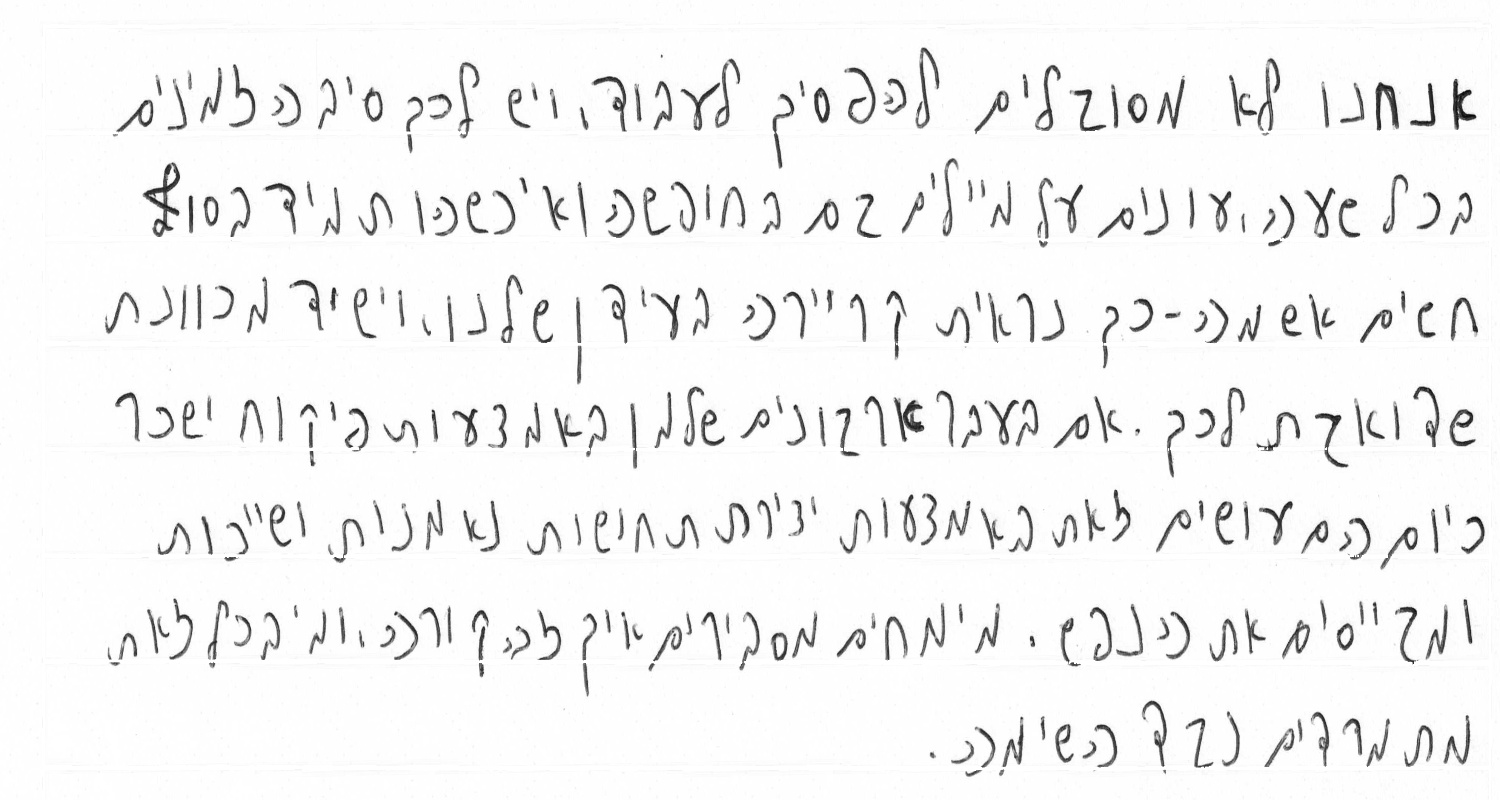 אנחנו לא מסוגלים להפסיק לעבוד, ויש לכך סיבה. זמינים
בכל שעה, עונים על מיילים גם בחופשה וא כשפות תמיד ברגע
חשים אשמה - כך נראית קריירה בעידן שלנו, ויש יד מכוונת
שדואגת לכך. אם בעבר ארגונים שלטו באמצעות פיקוח ושכר
כיום הם עושים זאת באמצעות יצירת תחושות נאמנות ושייכות
ומגייסים את הנפש. מומחים מסבירים איך זה קורה, ומי בכל זאת
מתמרדים נגד השיטה.